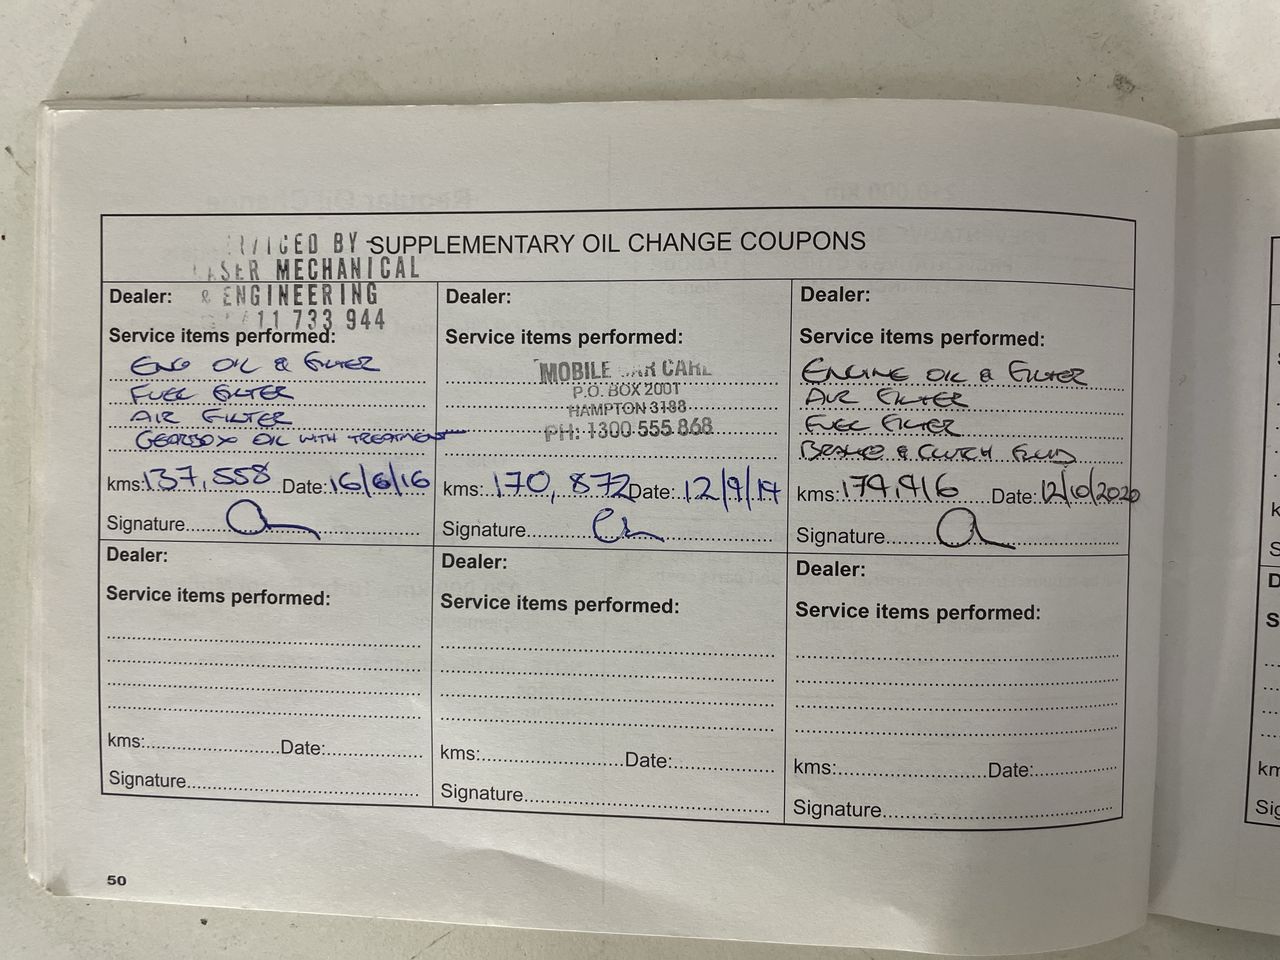 SERVICED BY
LASER MECHANICAL
& ENGINEERING
11 733 944
SUPPLEMENTARY OIL CHANGE COUPONS
Dealer:
Service items performed:
ENG OIL & FILTER
FUEL FILTER
AIR FILTER
GEARBOX OIL WITH TREATMENT
kms: 137,558 Date: 16/6/16
Signature
Dealer:
Service items performed:
MOBILE CAR CARE
P.O. BOX 2001
HAMPTON 3188
PH: 1300 555 868
kms: 170,872 Date: 12/9/19
Signature
Dealer:
Service items performed:
ENGINE OIL & FILTER
AIR FILTER
FUEL FILTER
BRAKE & CLUTCH FLUID
kms: 174,916 Date: 12/10/2020
Signature
Dealer:
Service items performed:
kms: Date:
Signature
Dealer:
Service items performed:
kms: Date:
Signature
Dealer:
Service items performed:
kms: Date:
Signature
50